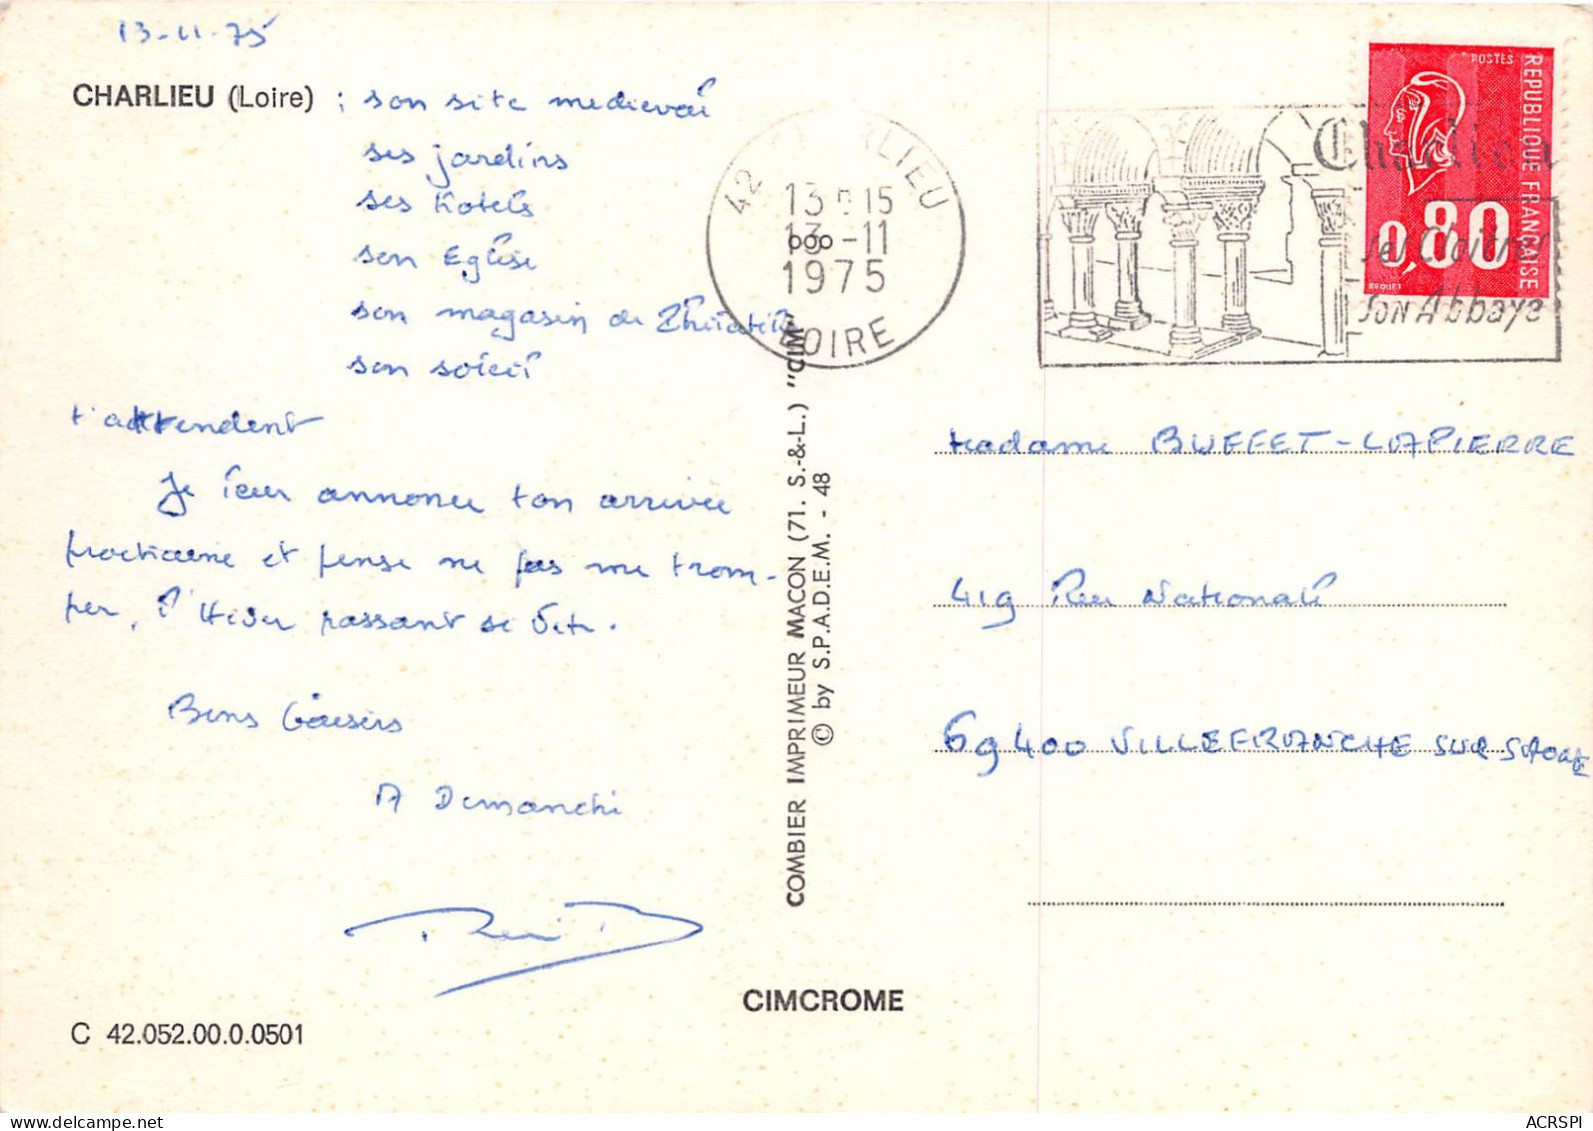 13-11-75
CHARLIEU (Loire) : son site medieval
ses jardins
ses hotels
son Eglise
son magasin de
son soleil
t'attendent
Je leur annonce ton arrivée
prochaine et pense ne pas me trom-
per, l'Hiver passant si vite.
Bons baisers
A Dimanche
C 42.052.00.0.0501
CIMCROME
COMBIER IMPRIMEUR MACON (71. S.-&-L.) "CIM"
© by S.P.A.D.E.M. - 48
42 CHARLIEU
13 H 15
13 -11
1975
LOIRE
Charlieu
ses Cloitres
SON Abbaye
POSTES
REPUBLIQUE FRANÇAISE
0,80
BEQUET
Madame BUFFET-LAPIERRE
419 Rue Nationale
69400 VILLEFRANCHE SUR SAONE
ACRSPI